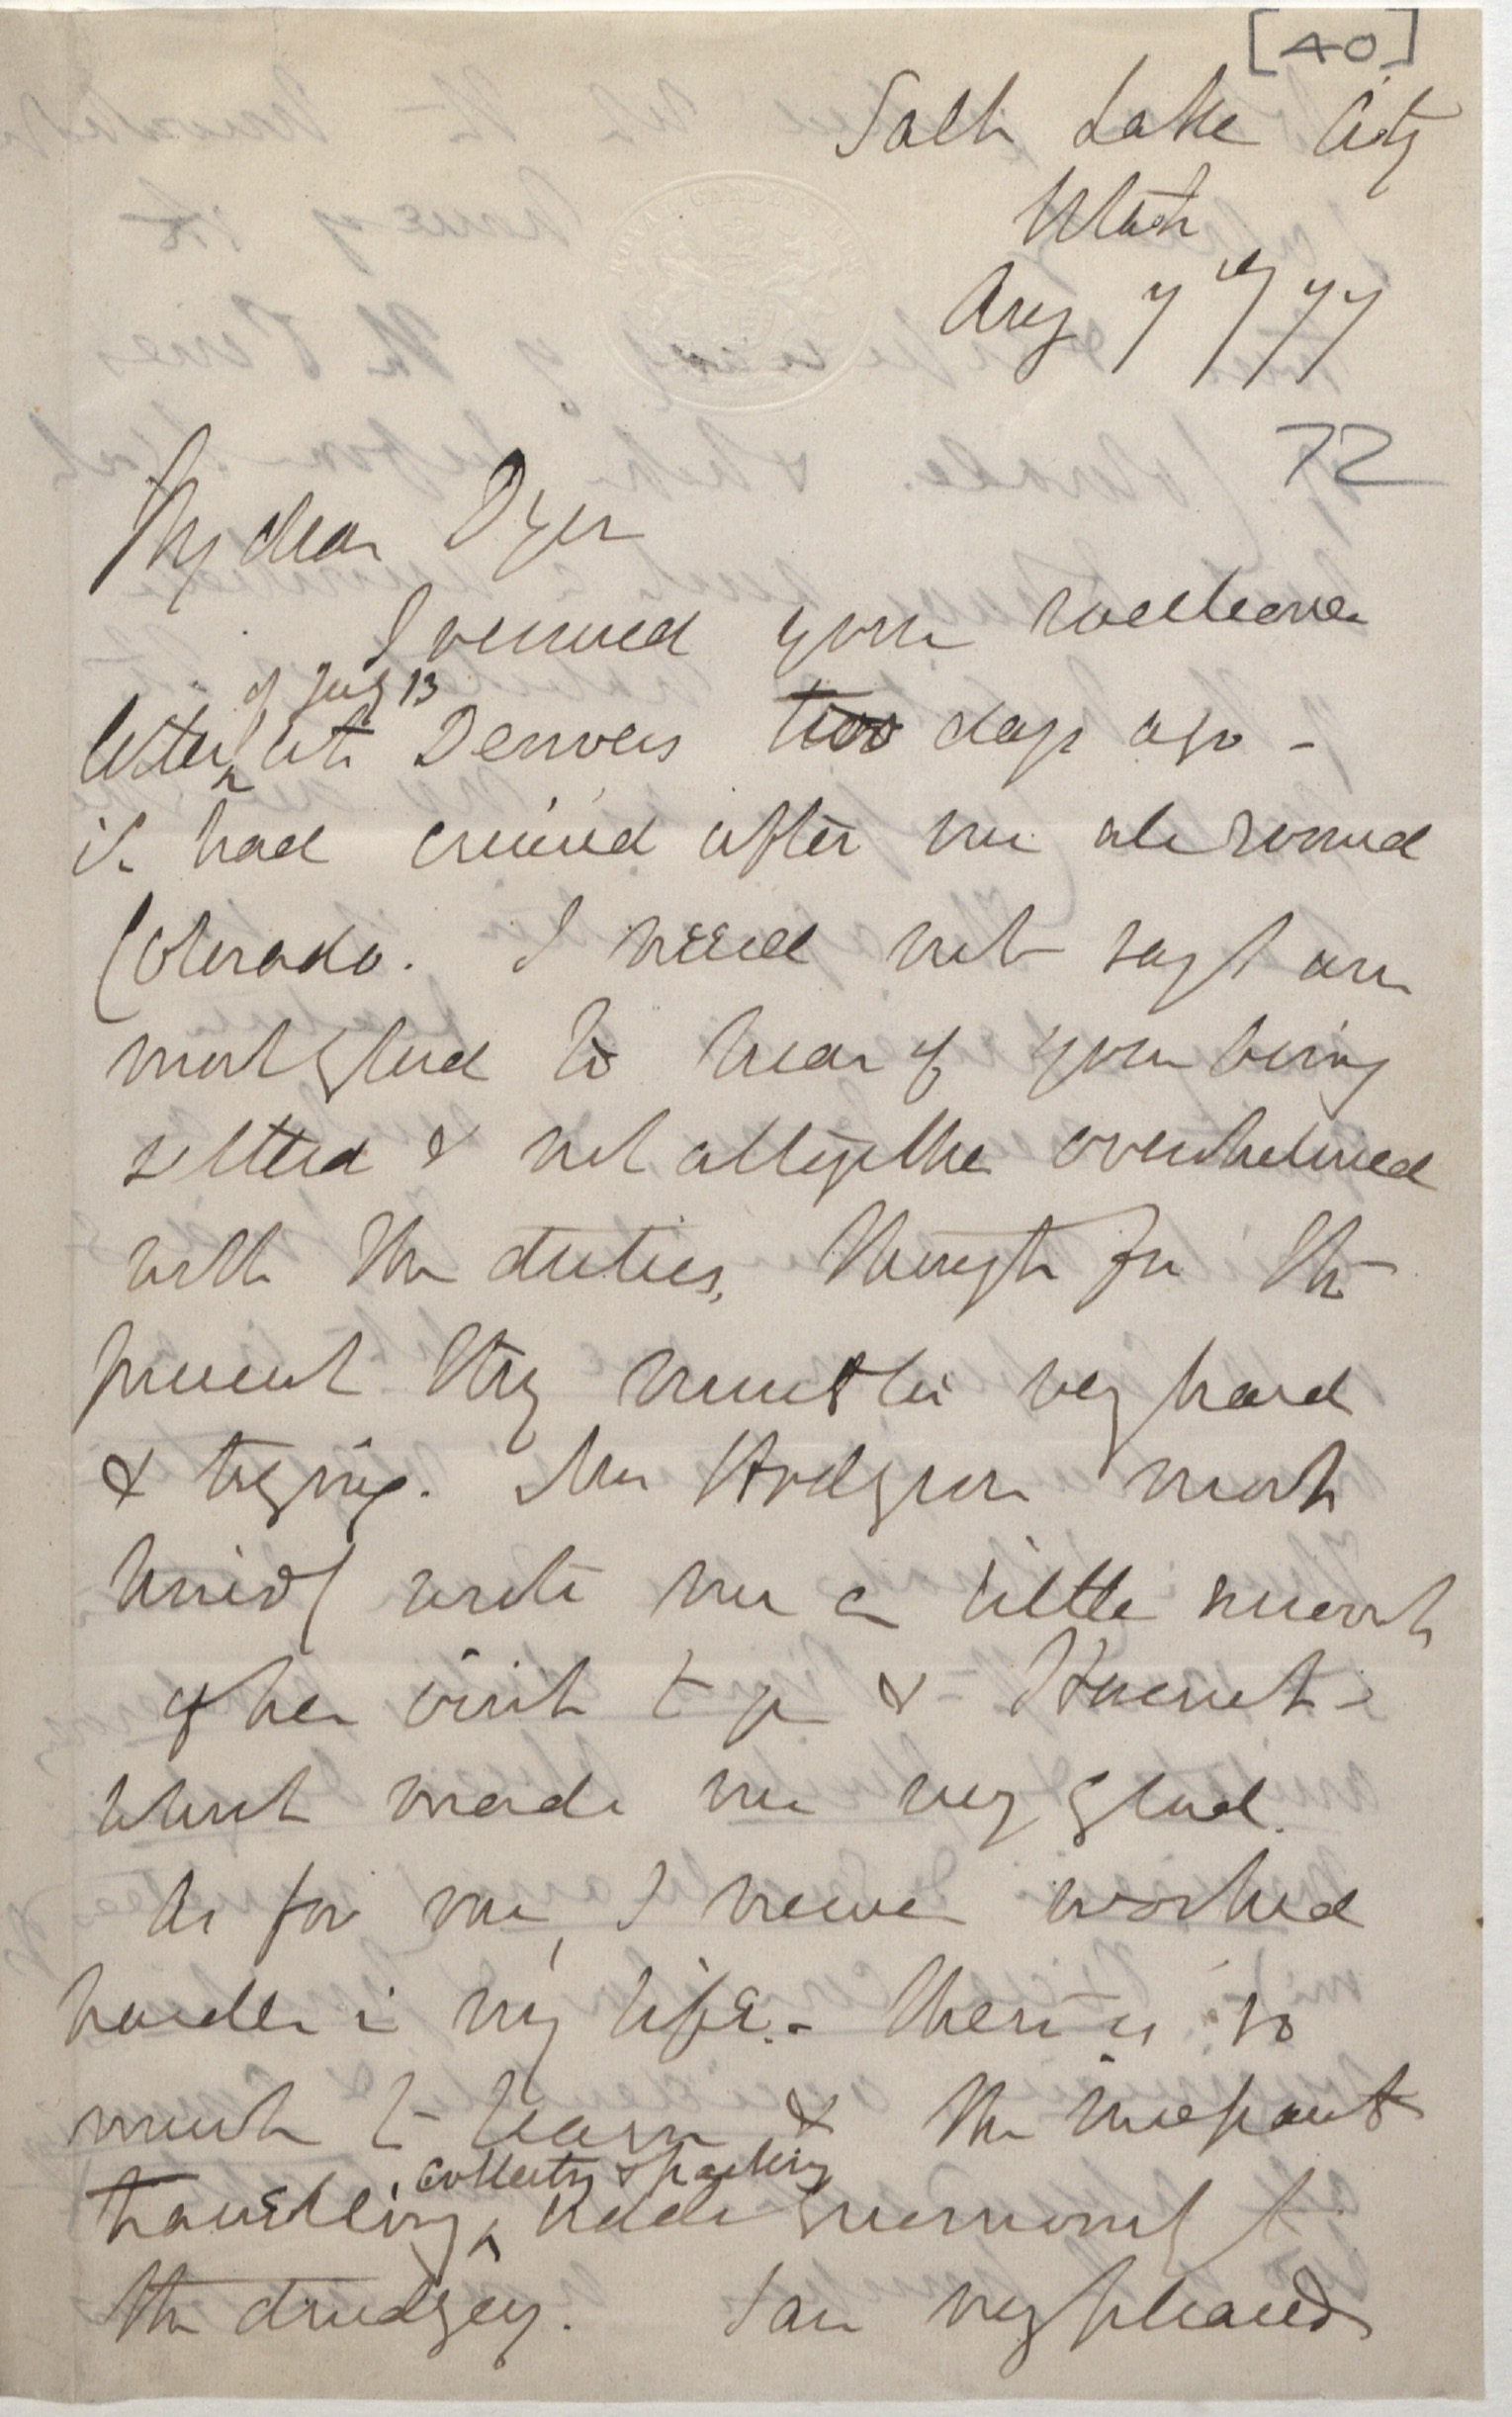 [40]
Salt Lake City
Utah
Aug 7th/77
72
My dear Dyer
I received your welcome
letter of July 13 at Denver two days ago -
it had cruised after me all round
Colorado. I need not say I am
most glad to hear of your being
settled & not altogether overwhelmed
with the duties, though for the
present they must be very hard
& trying. Mrs Hodgson most
kindly wrote me a little
of her visit to you & Harriet -
which made me very glad.
As for me, I never worked
harder in my life. - there is so
much to learn & the incessant
travelling, collecting & packing adds enormously to
the drudgery. I am very pleased